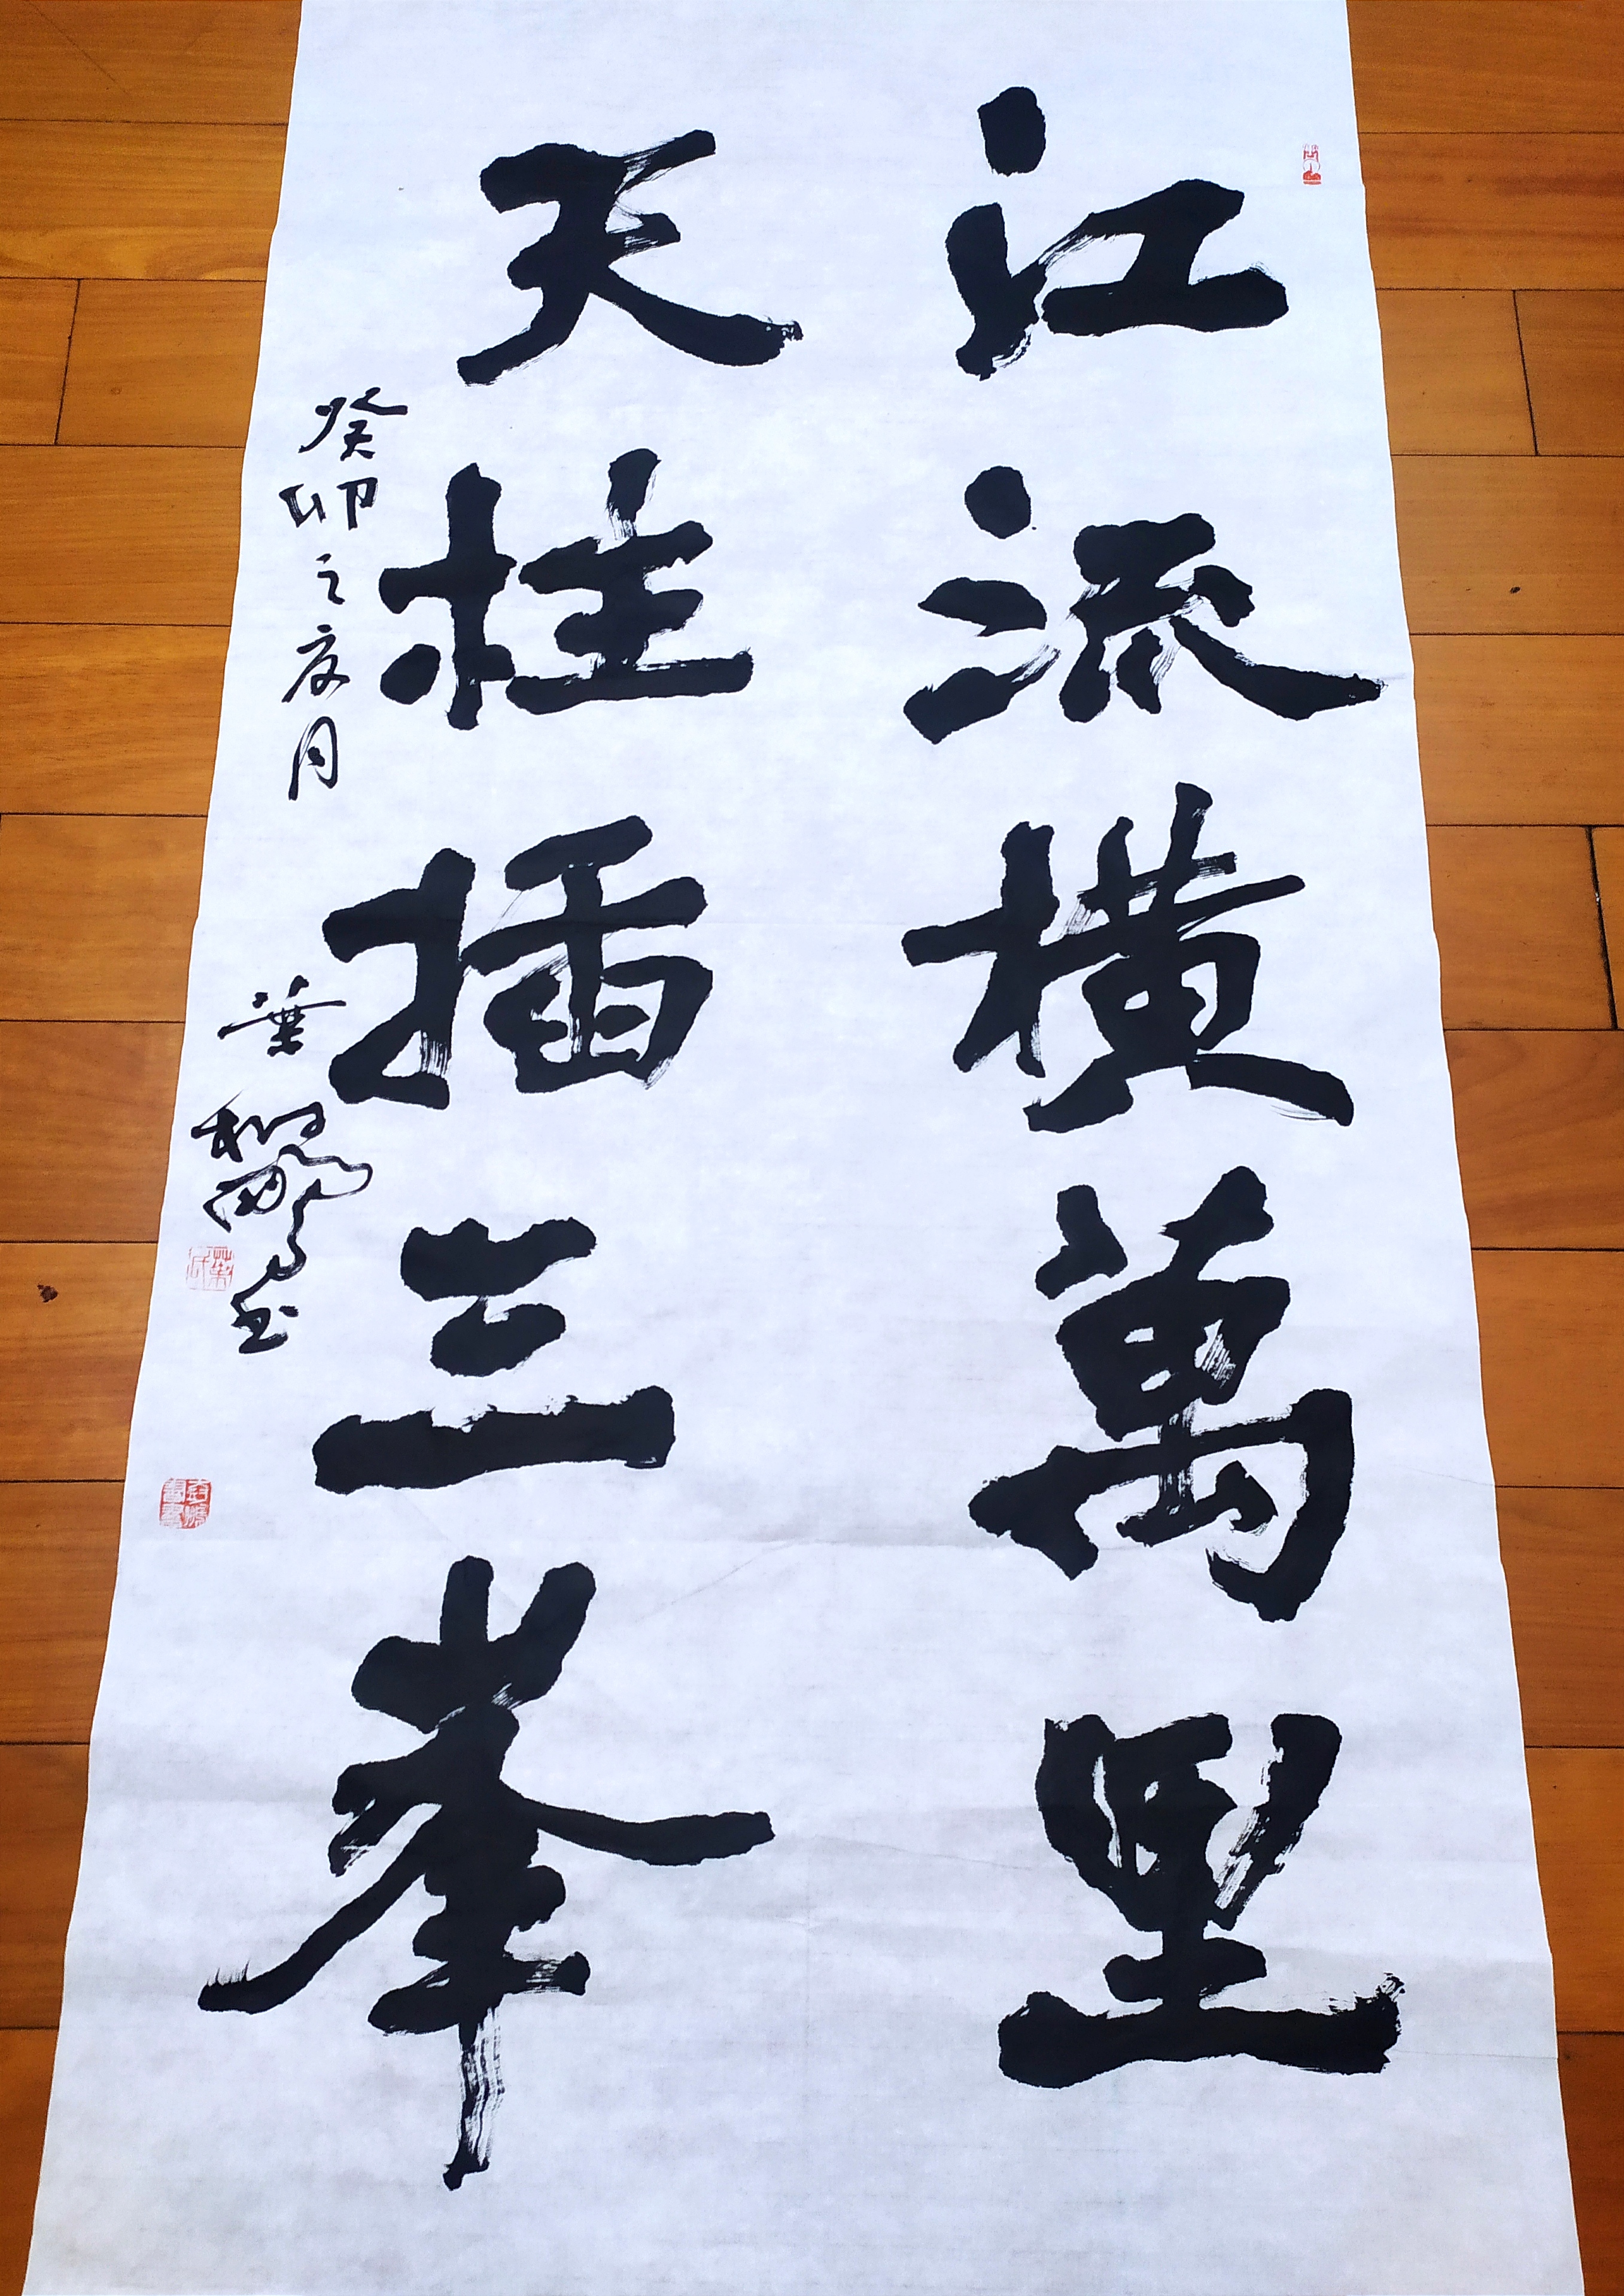 江流橫萬里
天柱插三峯
癸卯之夏月
葉